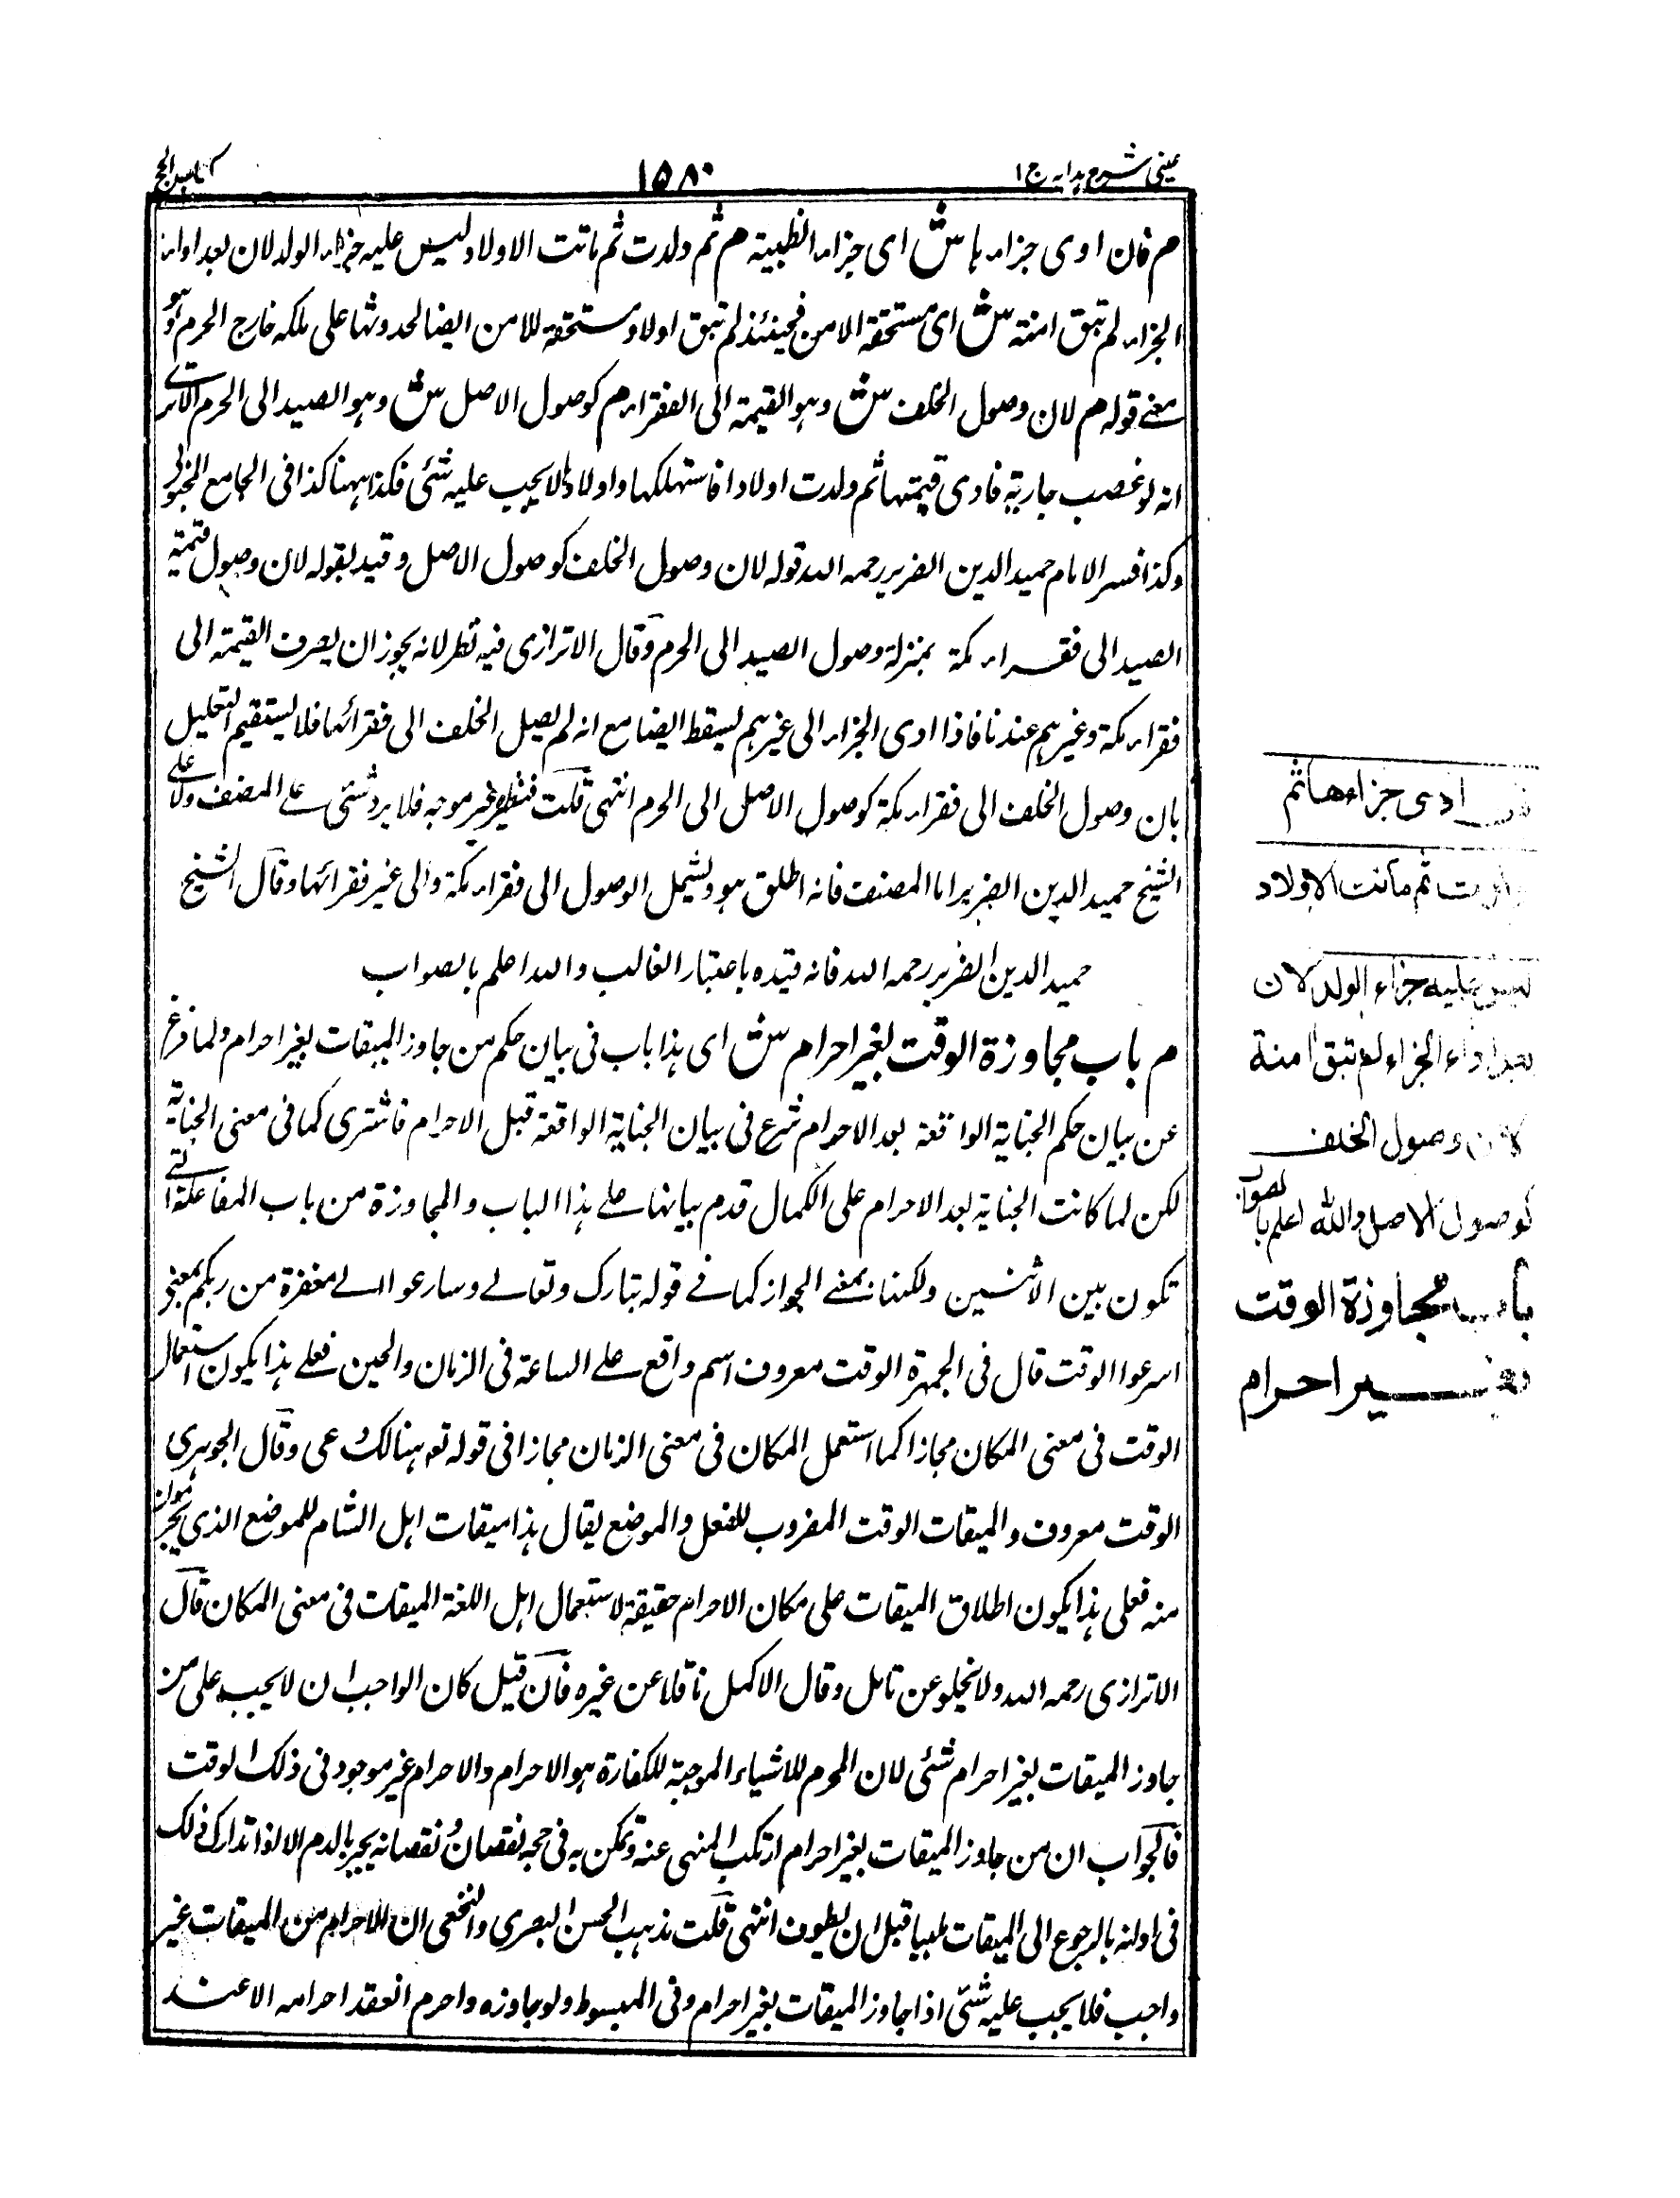 عینی شرح ہدایہ ج ۱
۱۵۸۰
کتاب الحج
م فان ادی جزاءہا ش ای جزاء الظبیة م ثم ولدت ثم ماتت الاولاد لیس علیہ جزاء الولد لان بعد اداء
الجزاء لم تبق امنة ش ای مستحقة الامن فحینئذ لم تبق اولاد مستحقة للامن ایضا لحدوثہا علی ملکہ خارج الحرم وہو
معنے قولہ م لان وصول الخلف ش وہو القیمة الی الفقراء م کوصول الاصل ش وہو الصید الی الحرم الاترے
انہ لو غصب جاریة فادی قیمتہا ثم ولدت اولادا فاستہلکہا واولادہا لا یجب علیہ شئی فکذا ہہنا کذا فی الجامع المحبوبی
وکذا فسر الامام حمید الدین الضریر رحمہ اللہ قولہ لان وصول الخلف کوصول الاصل وقید بقولہ لان وصول قیمة
الصید الی فقراء مکة بمنزلة وصول الصید الی الحرم وقال الاترازی فیہ نظر لانہ یجوز ان یصرف القیمة الی
فقراء مکة وغیرہم عندنا فاذا ادی الجزاء الی غیرہم یسقط ایضا مع انہ لم یصل الخلف الی فقرائہا فلا یستقیم التعلیل
بان وصول الخلف الی فقراء مکة کوصول الاصل الی الحرم انتہی قلت فنظیر غیر موجہ فلا یرد شئی علی المصنف ولا علے
الشیخ حمید الدین الضریر اما المصنف فانہ اطلق ہو ویشمل الوصول الی فقراء مکة والی غیر فقرائہا وقال الشیخ
حمید الدین الضریر رحمہ اللہ فانہ قیدہ باعتبار الغالب واللہ اعلم بالصواب
م باب مجاوزة الوقت بغیر احرام ش ای ہذا باب فی بیان حکم من جاوز المیقات بغیر احرام ولما فرغ
عن بیان حکم الجنایة الواقعة بعد الاحرام شرع فی بیان الجنایة الواقعة قبل الاحرام فاشتری کما فی معنی الجنایة
لکن لما کانت الجنایة بعد الاحرام علی الکمال قدم بیانہا علے ہذا الباب والمجاوزة من باب المفاعلة التے
تکون بین الاثنین ولکنہا بمعنے الجواز کما فے قولہ تبارک وتعالے وسارعوا الے مغفرة من ربکم بمعنی
اسرعوا الوقت قال فی الجمہرة الوقت معروف اسم واقع علے الساعة فی الزمان والحین فعلے ہذا یکون استعمال
الوقت فی معنی المکان مجازا کما استعمل المکان فی معنی الزمان مجازا فی قولہ تعہ ہنالک دعی وقال الجوہری
الوقت معروف والمیقات الوقت المضروب للفعل والموضع یقال ہذا میقات اہل الشام للموضع الذی یحرمون
منہ فعلی ہذا یکون اطلاق المیقات علی مکان الاحرام حقیقة لاستعمال اہل اللغة المیقات فی معنی المکان قال
الاترازی رحمہ اللہ ولا یخلو عن تامل وقال الاکمل ناقلا عن غیرہ فان قیل کان الواجب ان لا یجب علی من
جاوز المیقات بغیر احرام شئی لان المحرم للاشیاء الموجبة للکفارة ہو الاحرام والاحرام غیر موجود فی ذلک الوقت
فالجواب ان من جاوز المیقات بغیر احرام ارتکب المنہی عنہ وتمکن بہ فی حجہ نقصان ونقصانہ یجبر بالدم الا اذا تدارک ذلک
فی اوانہ بالرجوع الی المیقات ملبیا قبل ان یطوف انتہی قلت مذہب الحسن البصری والنخعی ان الاحرام من المیقات غیر
واجب فلا یجب علیہ شئی اذا جاوز المیقات بغیر احرام وفی المبسوط ولو جاوزہ واحرم انعقد احرامہ الا عند
ادی جزاءها ثم
ثم ماتت الاولاد
ليس عليه جزاء الولد لان
بعد اداء الجزاء لم تبق امنة
لان وصول الخلف
كوصول الاصل والله اعلم بالصواب
باب مجاوزة الوقت
بغير احرام